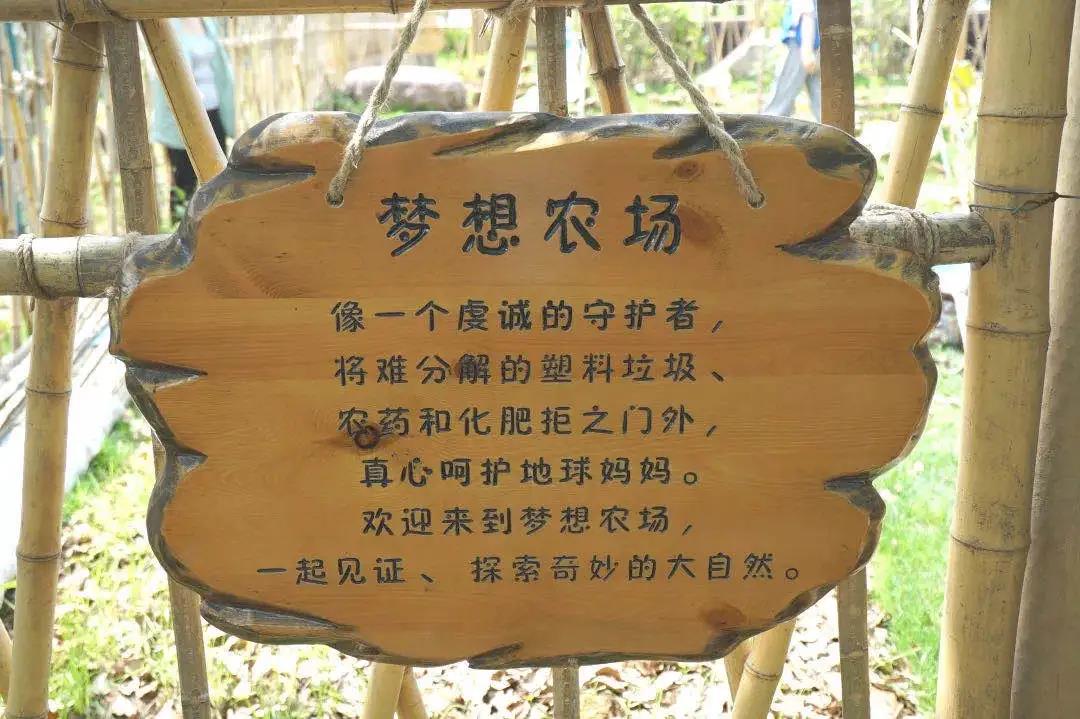 梦想农场
像一个虔诚的守护者，
将难分解的塑料垃圾、
农药和化肥拒之门外，
真心呵护地球妈妈。
欢迎来到梦想农场，
一起见证、探索奇妙的大自然。